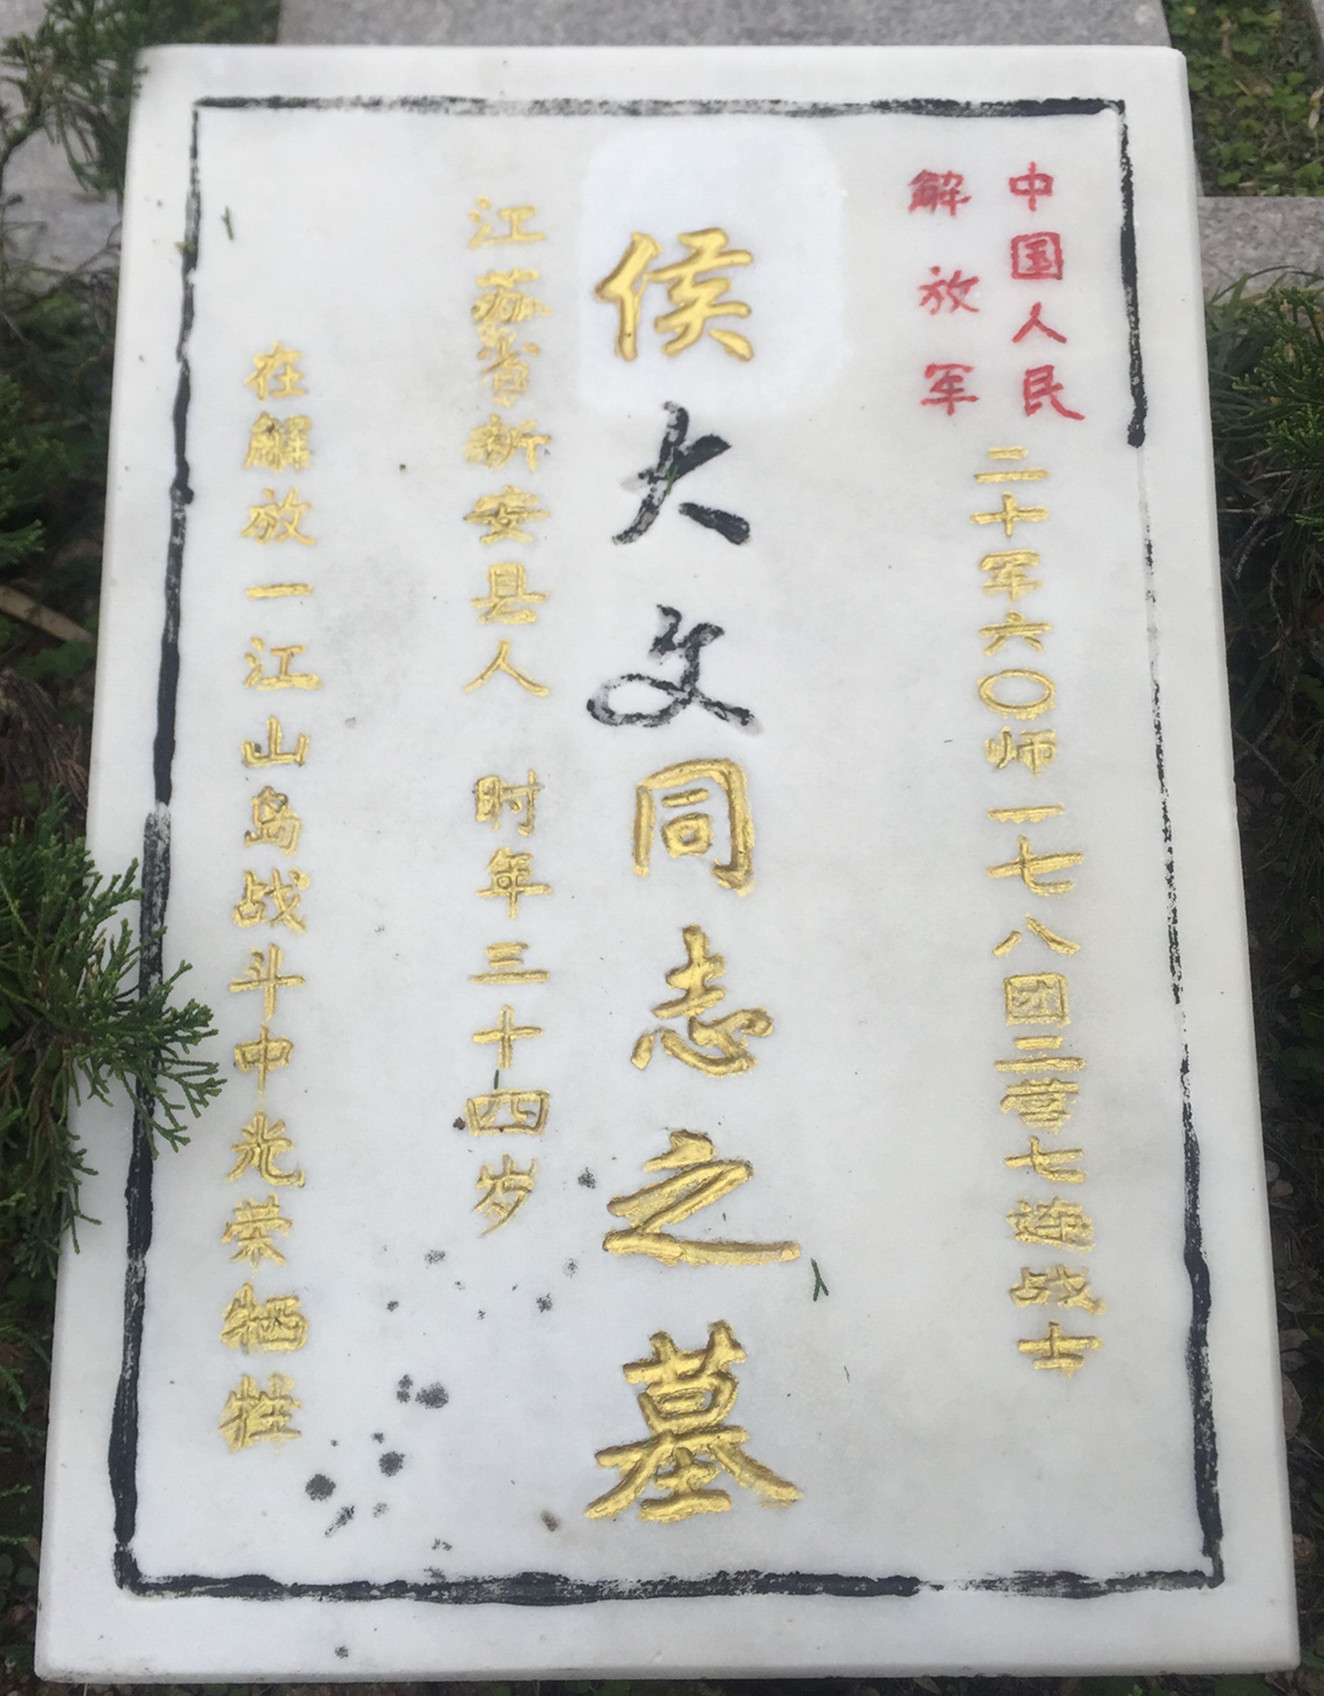 中国人民
解放军
二十军六〇师一七八团二营七连战士
侯大文同志之墓
江苏省新安县人 时年三十四岁
在解放一江山岛战斗中光荣牺牲